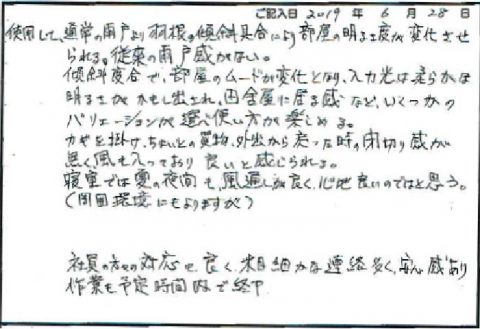 ご記入日 2019 年 6 月 28 日
使用して、通常の雨戸より羽根の傾斜具合により部屋の明るさ度が変化させ
られる。従来の雨戸感がない。
傾斜度合で、部屋のムードが変化となり、入力光は柔らかな
明るさがかもし出され、田舎屋に居る感など、いくつかの
バリエーションが選べ使い方が楽しめる。
カギを掛け、ちょいとの買物、外出から戻った時の閉切り感が
無く風も入っており良いと感じられる。
寝室では夏の夜間も、風通しが良く、心地良いのではと思う。
(周囲環境にもよりますが)
社員の方々の対応も良く、木目細かな連絡多く、安心感あり
作業も予定時間内で終了